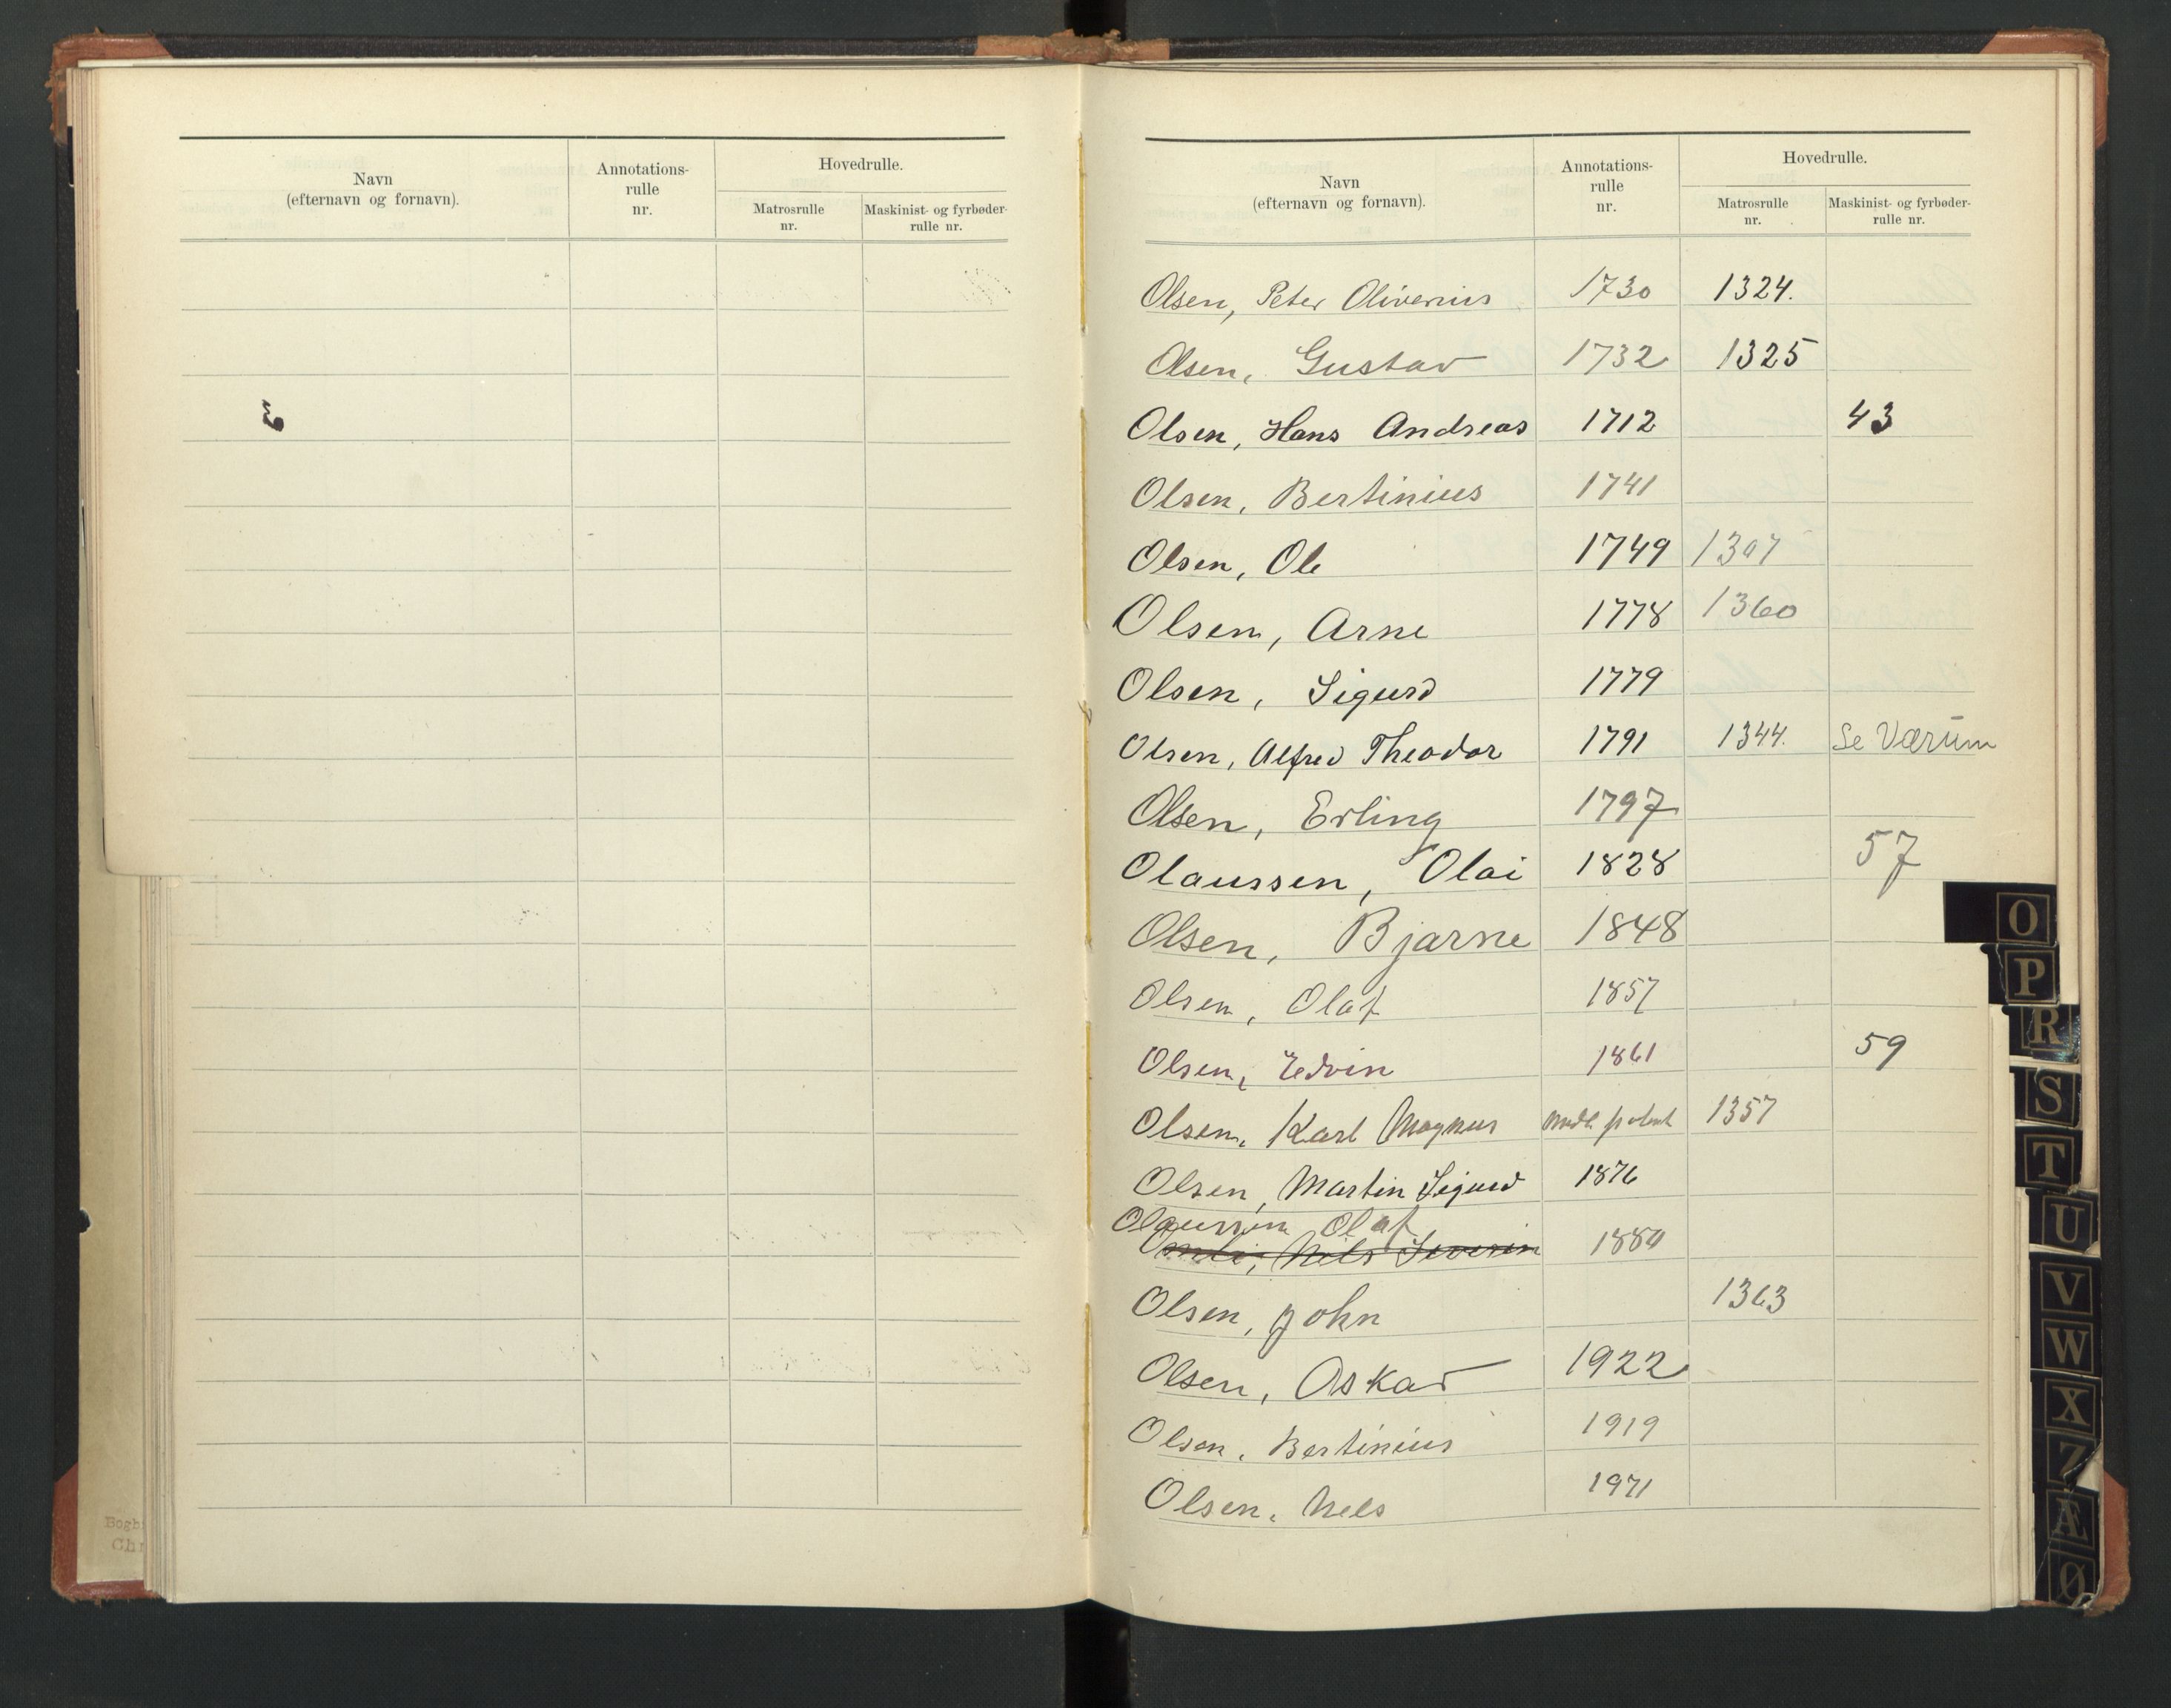 Navn
(efternavn og fornavn).
Annotations-
rulle
nr.
Hovedrulle.
Matrosrulle
nr.
Maskinist- og fyrbøder-
rulle nr.
Bogb
Chr
Navn
(efternavn og fornavn).
Annotations-
rulle
nr.
Hovedrulle.
Matrosrulle
nr.
Maskinist- og fyrbøder-
rulle nr.
Olsen, Peter Oliverius 1730 1324.
Olsen, Gustav 1732 1325
Olsen, Hans Andreas 1712 43
Olsen, Bertinius 1741
Olsen, Ole 1749 1307
Olsen, Arne 1778 1360
Olsen, Sigurd 1779
Olsen, Alfred Theodor 1791 1344. Se Værum
Olsen, Erling 1797
Olaussen, Olai 1828 57
Olsen, Bjarne 1848
Olsen, Olaf 1857
Olsen, Edvin 1861 59
Olsen, Karl Magnus 1357
Olsen, Martin Sigurd 1876
Olaussen Olaf
Nils Severin 1880
Olsen, John 1363
Olsen, Oskar 1922
Olsen, Bertinius 1919
Olsen, Nels 1971
O
P
R
S
T
U
V
W
X
Z
Æ
Ø